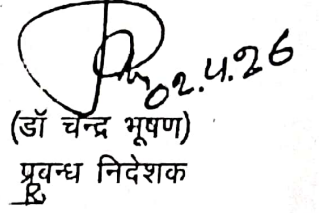 02.4.26
(डॉ चन्द्र भूषण)
प्रवन्ध निदेशक